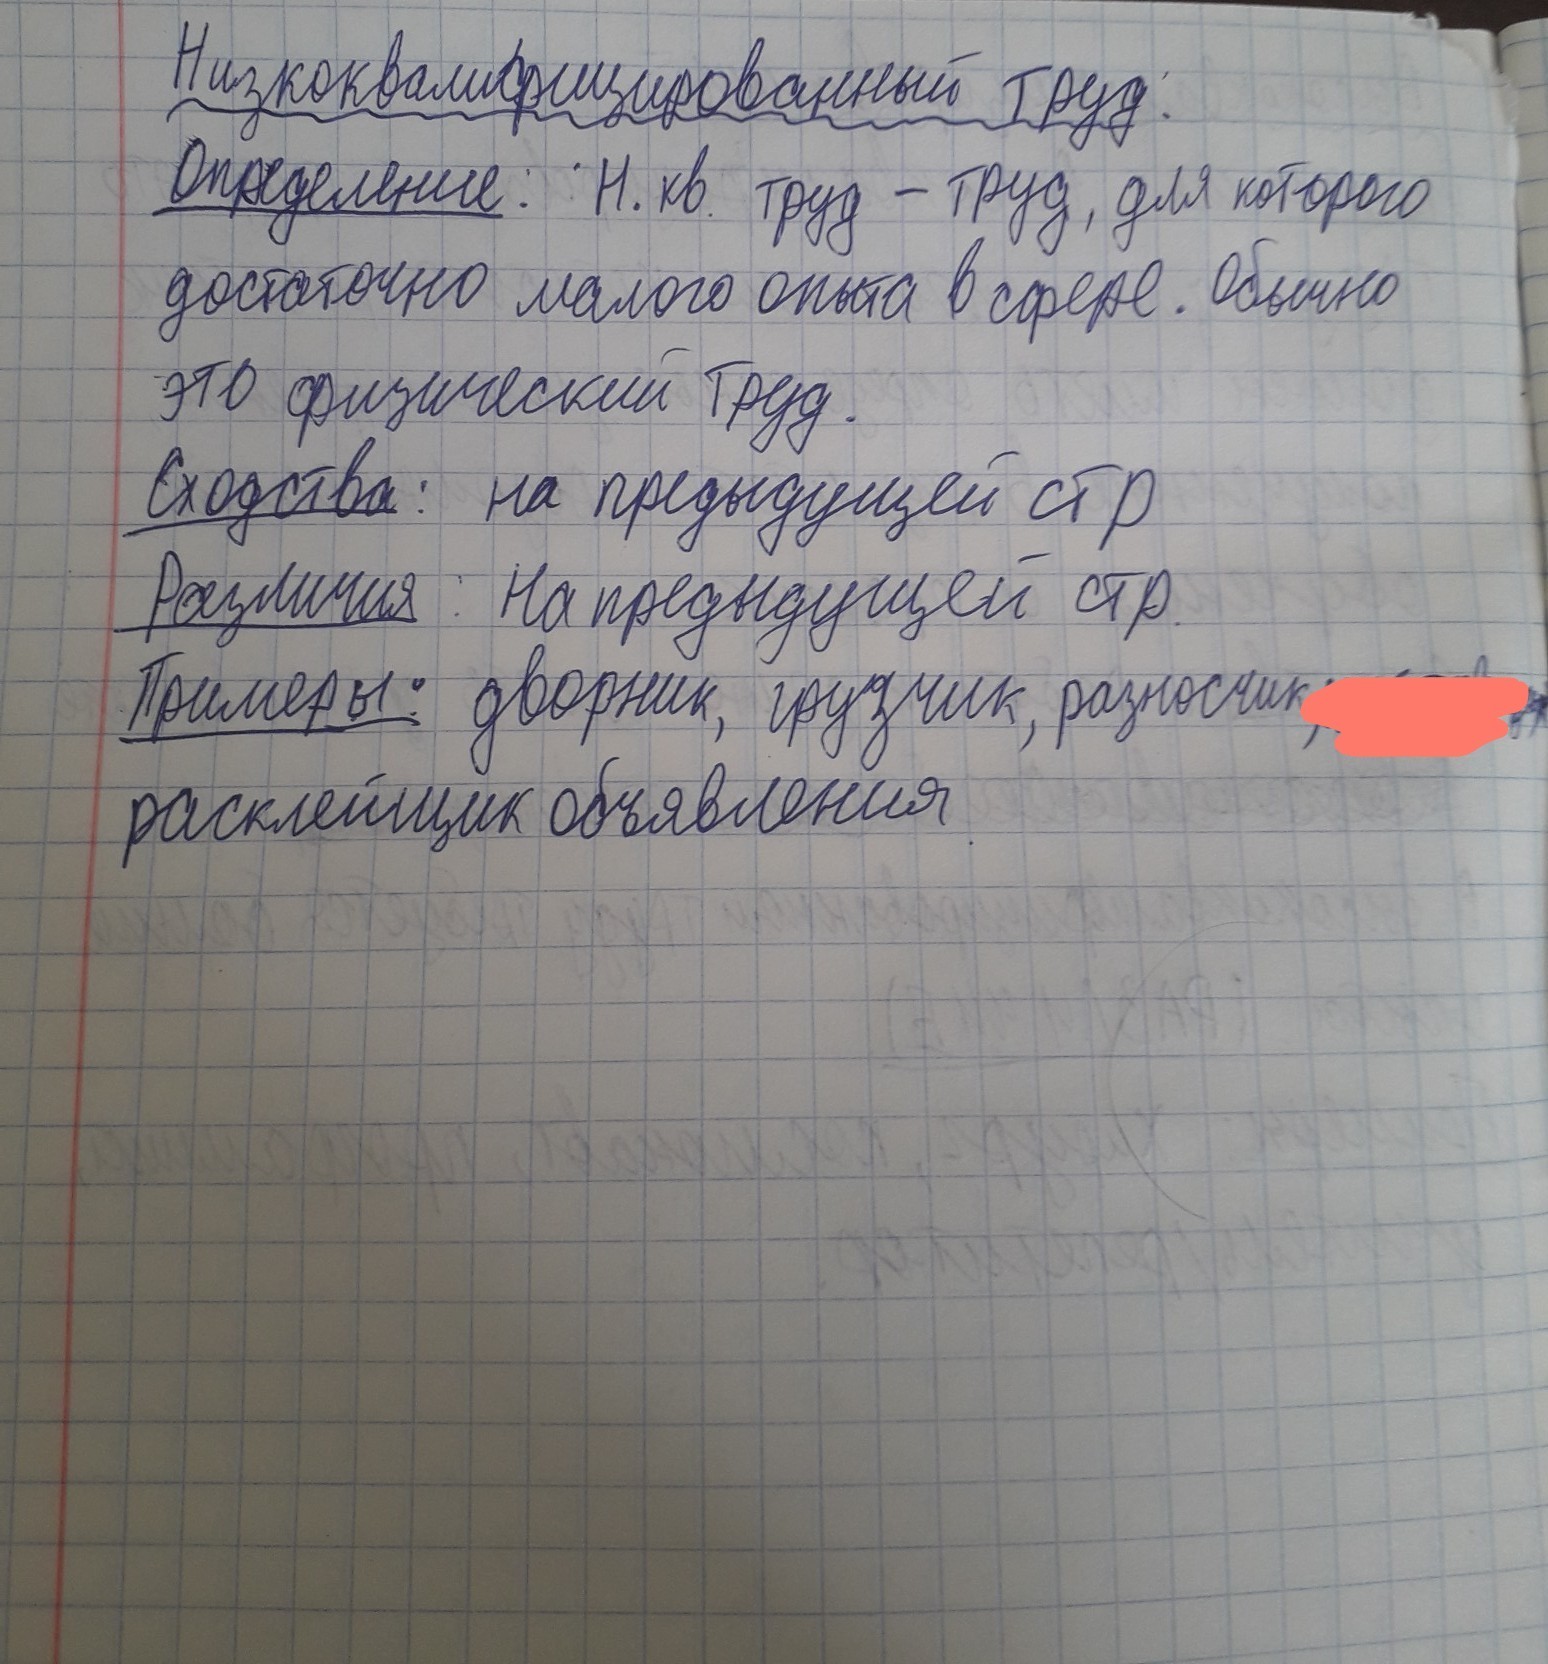 Низкоквалифицированный труд:
Определение: Н. кв. труд – труд, для которого
достаточно малого опыта в сфере. Обычно
это физический труд.
Сходства: на предыдущей стр
Различия: на предыдущей стр.
Примеры: дворник, грузчик, разносчик,
расклейщик объявления